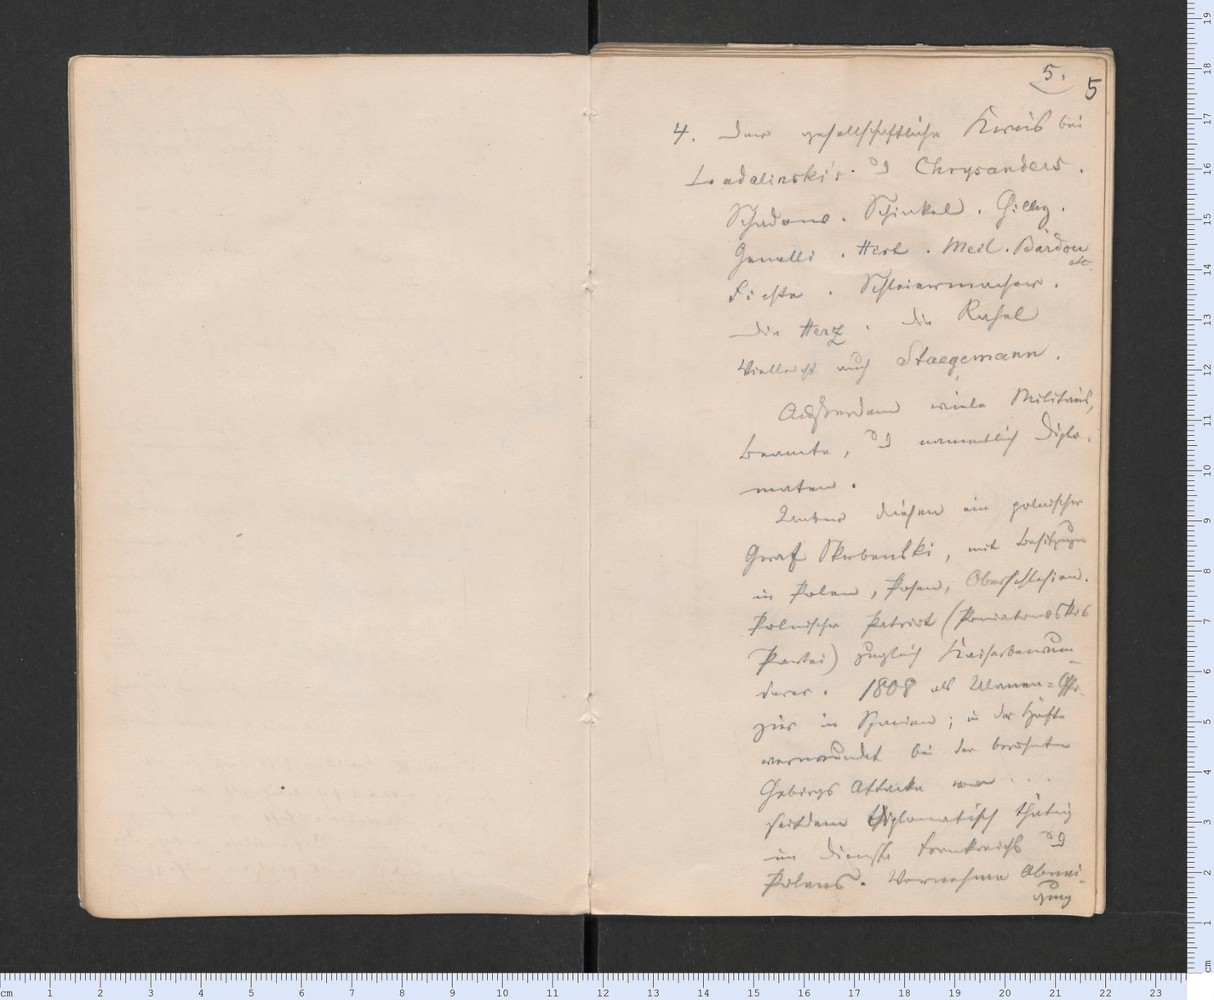 5.
5
4. Der gesellschaftliche Kreis bei
Ladalinski's. u Chrysanders.
Schadow. Schinkel. Gilly.
Genelli. Hirt. Meil. Bardou
etc.
Fichte. Schleiermacher.
Die Herz. die Rahel
Vielleicht auch Staegemann.
Außerdem viele Militärs,
Beamte, u namentlich Diplo-
maten.
Unter diesen ein polnischer
Graf Skrbenski, mit Besitzungen
in Polen, Posen, Oberschlesien.
Polnischer Patriot (Poniatowskis
Partei) zugleich Kaiserbewun-
derer. 1808 als Ulanen=Offi-
zier in Spanien; in der Hüfte
verwundet bei der berühmten
Gebirgs Attacke von ...
seitdem diplomatisch thätig
im Dienste Frankreichs u
Polens. Vornehme Abnei-
gung